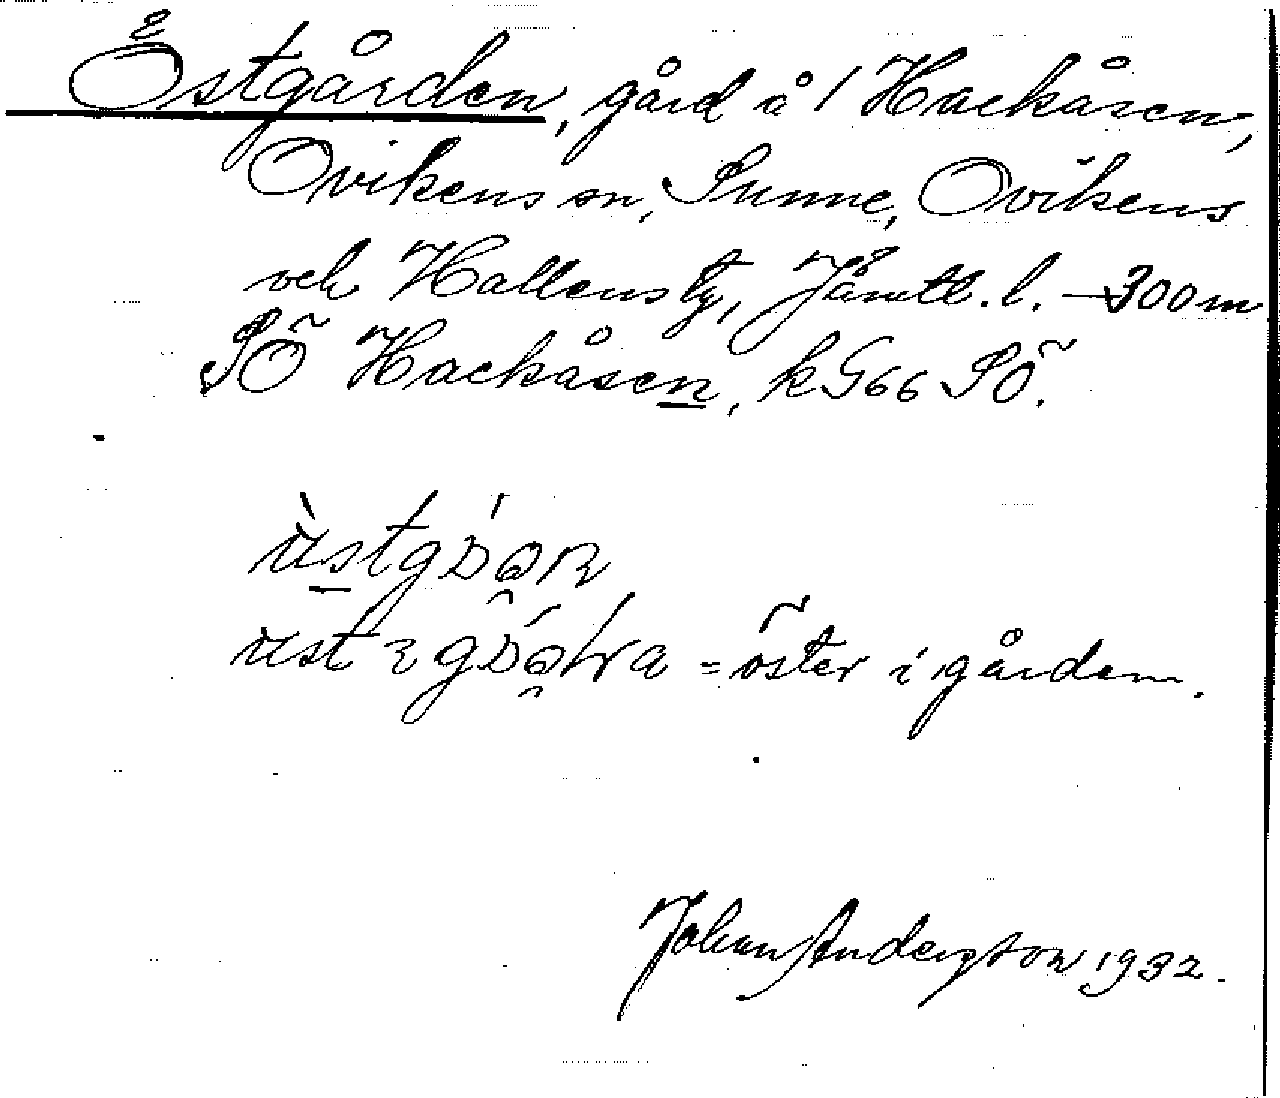 Östgården, gård å 1 Hackåsen,
Ovikens sn, Sunne, Ovikens
och Hallens tg, Jämtl. l. - 300 m
SÖ Hackåsen, k G66 SÖ.
= öster i gården.
Johan Anderson 1932.